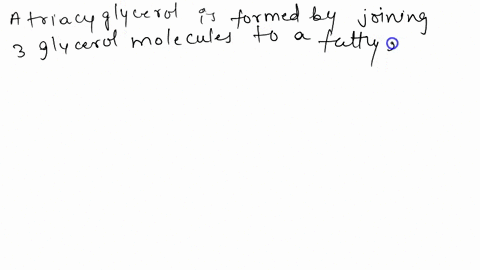 A triacyglycerol is formed by joining
3 glycerol molecules to a fatty